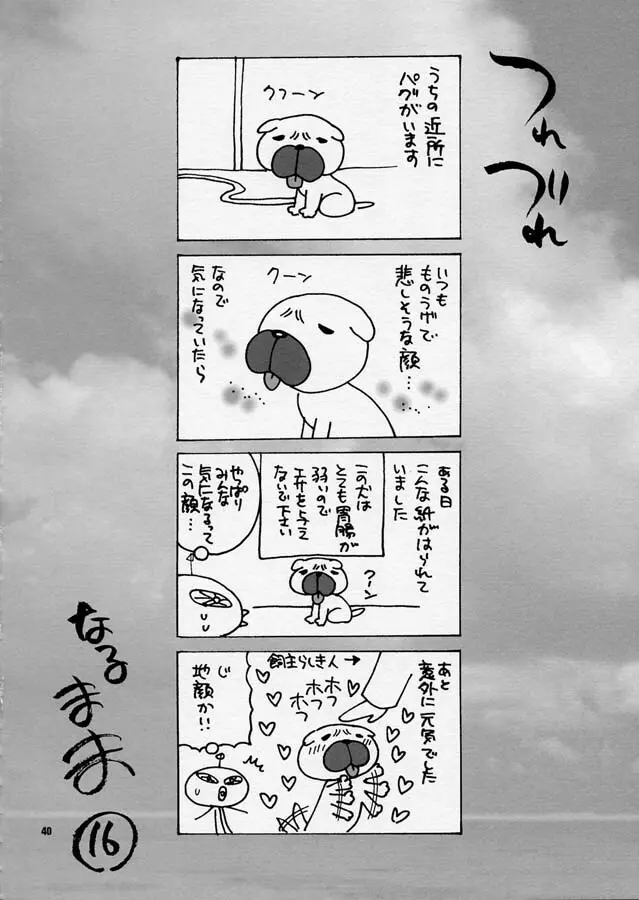 つれ
づれ
なる
まま
16
うちの近所に
パグがいます
クゥーン
いつも
ものうげで
悲しそうな顔…
クーン
なので
気になっていたら
ある日
こんな紙がはられて
いました
この犬は
とても胃腸が
弱いので
エサを与え
ないで下さい
クーン
やっぱり
みんな
気になるって
この顔…
あと
意外に元気でした
飼主らしき人→
ホフ
ホフ
ホフ
じ
地顔か!!
40